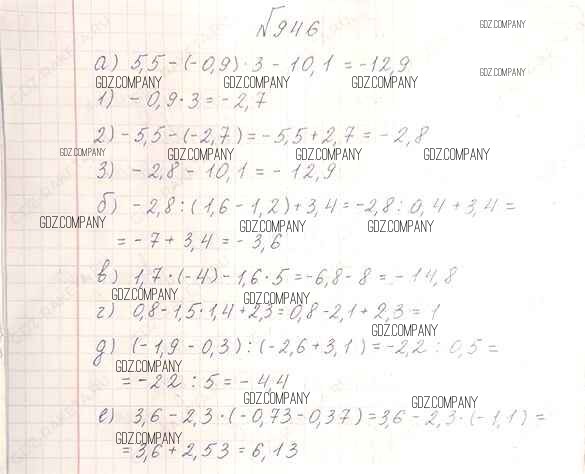 №946
GDZ.COMPANY
а) 5,5 - (-0,9) · 3 - 10,1 = -12,9
GDZ.COMPANY GDZ.COMPANY GDZ.COMPANY GDZ.COMPANY
1) - 0,9 · 3 = - 2,7
2) - 5,5 - (- 2,7) = - 5,5 + 2,7 = - 2,8
GDZ.COMPANY GDZ.COMPANY GDZ.COMPANY GDZ.COMPANY
3) - 2,8 - 10,1 = - 12,9
б) - 2,8 : (1,6 - 1,2) + 3,4 = - 2,8 : 0,4 + 3,4 =
GDZ.COMPANY GDZ.COMPANY GDZ.COMPANY
= - 7 + 3,4 = - 3,6
в) 1,7 · (-4) - 1,6 · 5 = -6,8 - 8 = - 14,8
GDZ.COMPANY GDZ.COMPANY
г) 0,8 - 1,5 · 1,4 + 2,3 = 0,8 - 2,1 + 2,3 = 1
GDZ.COMPANY
д) (- 1,9 - 0,3) : (- 2,6 + 3,1) = - 2,2 : 0,5 =
GDZ.COMPANY
= - 22 : 5 = - 4,4
GDZ.COMPANY GDZ.COMPANY
е) 3,6 - 2,3 · (- 0,73 - 0,37) = 3,6 - 2,3 · (- 1,1) =
GDZ.COMPANY
= 3,6 + 2,53 = 6,13